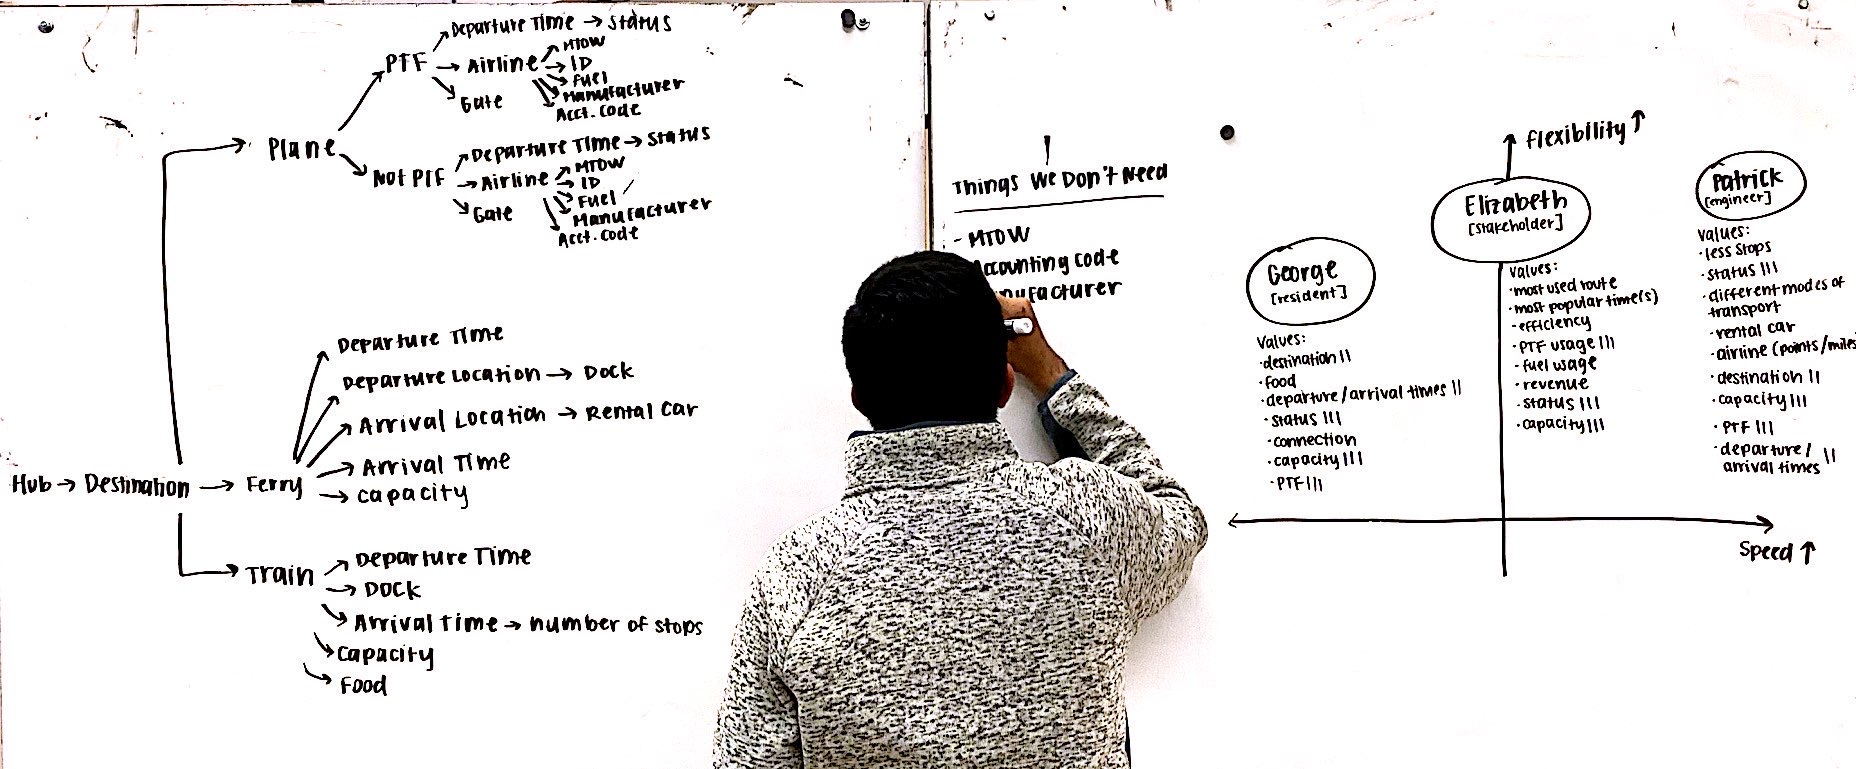 Departure Time → Status
PTF → Airline → MTOW
→ ID
Fuel
Manufacturer
Acct. Code
Gate
Plane
Not PTF
Departure Time → Status
→ Airline → MTOW
→ ID
Fuel
Manufacturer
Acct. Code
Gate
Hub → Destination → Ferry
Departure Time
Departure Location → Dock
Arrival Location → Rental Car
Arrival Time
Capacity
Train
Departure Time
Dock
Arrival Time → number of stops
Capacity
Food
Things We Don't Need
- MTOW
Accounting Code
Flexibility ↑
Speed ↑
George
[resident]
Values:
· destination II
· food
· departure/arrival times II
· status III
· connection
· capacity III
· PTF III
Elizabeth
[stakeholder]
Values:
· most used route
· most popular time(s)
· efficiency
· PTF usage III
· fuel usage
· revenue
· status III
· capacity III
Patrick
[engineer]
Values:
· less stops
· status III
· different modes of
transport
· rental car
· airline (points/miles
· destination II
· capacity III
· PTF III
· departure/
arrival times II